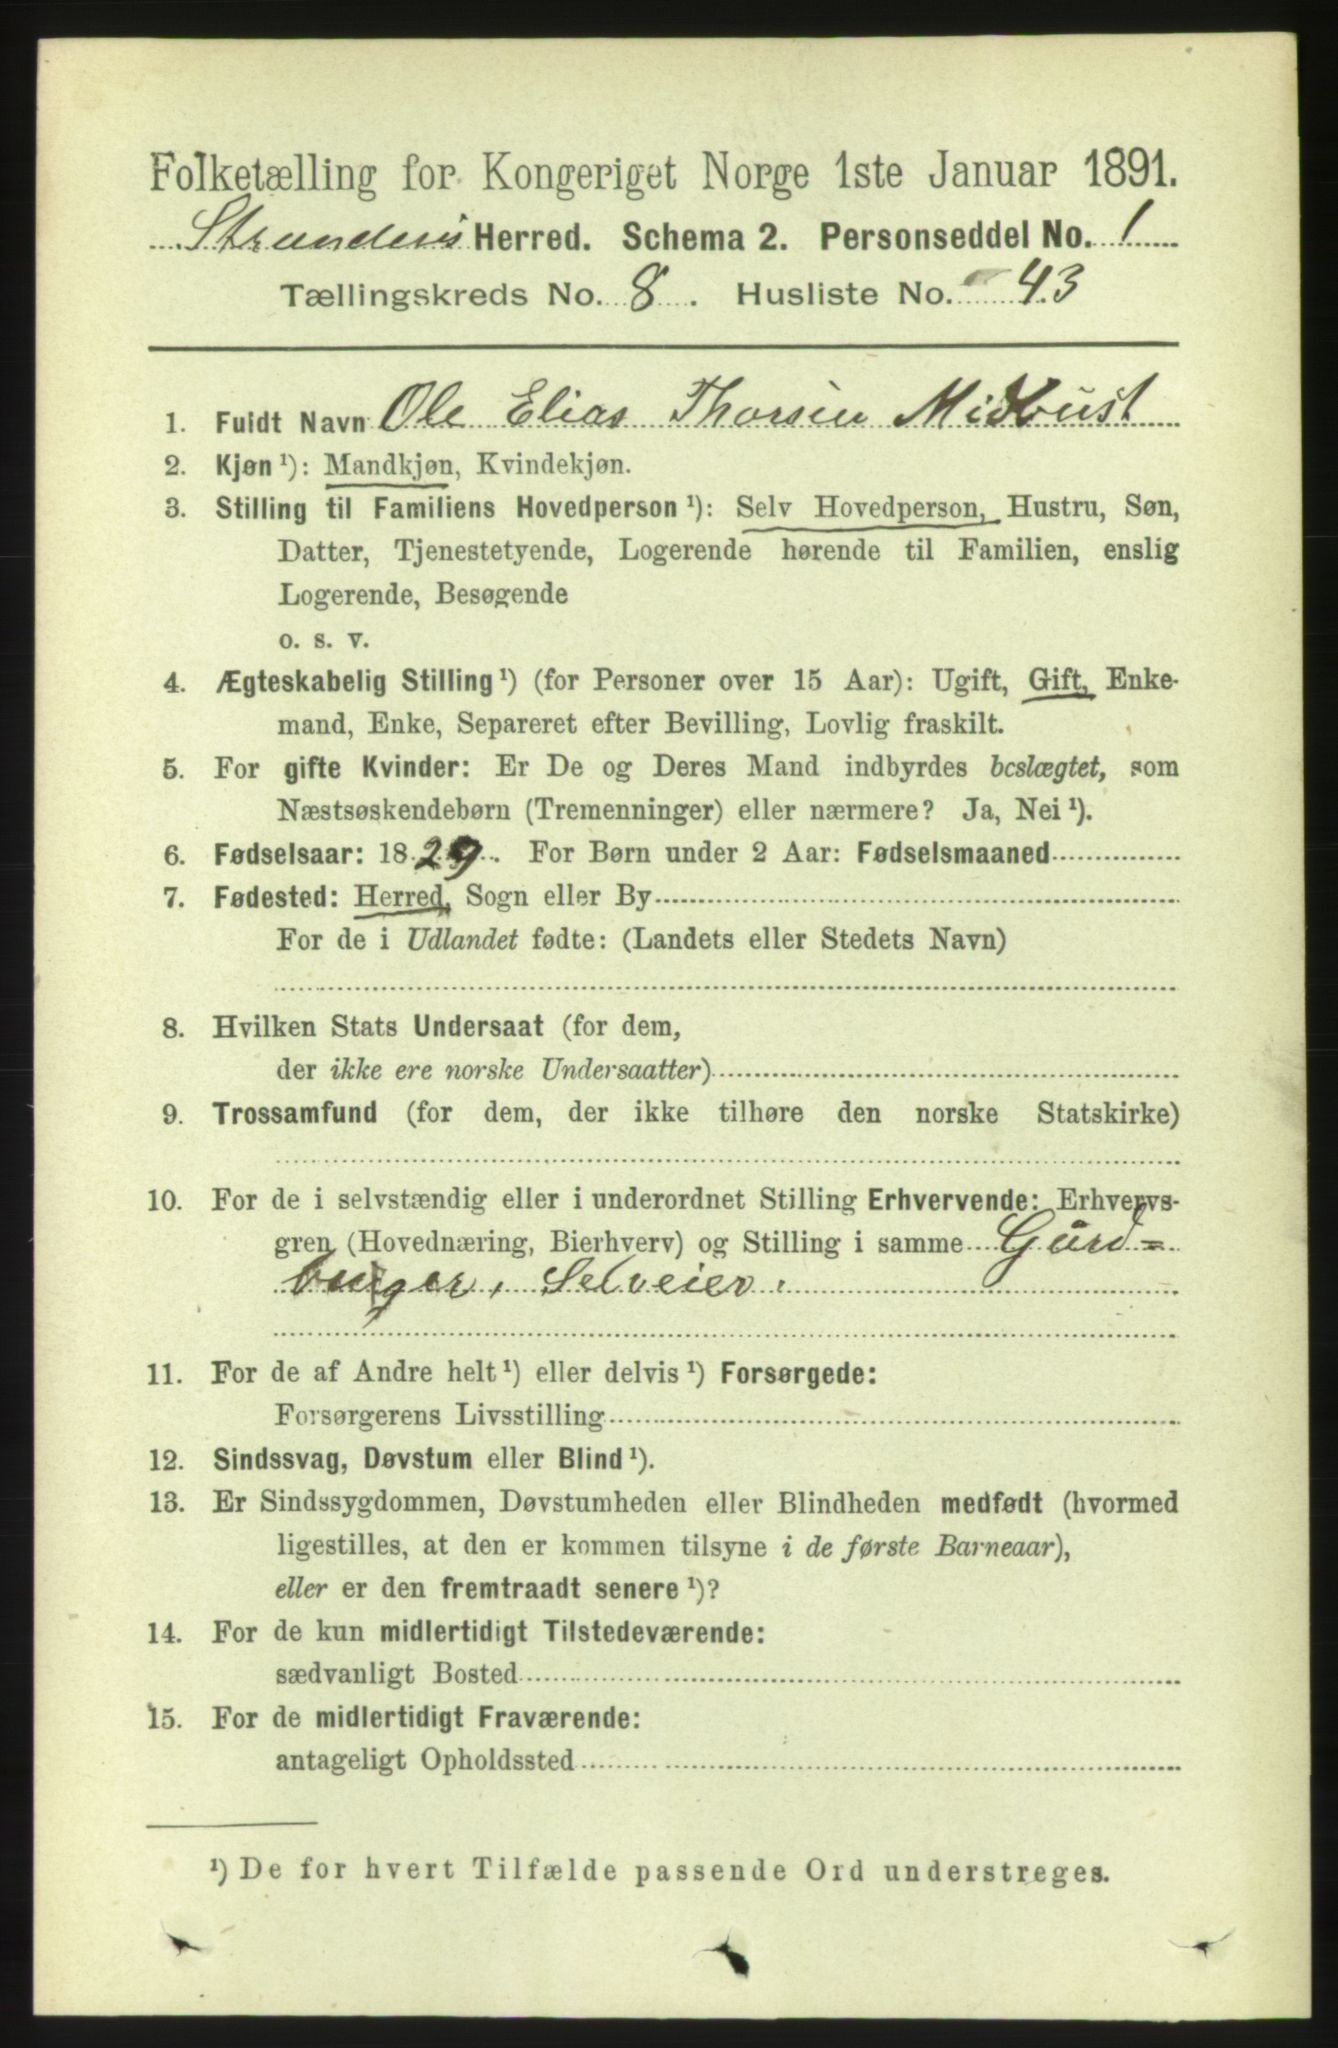 Folketælling for Kongeriget Norge 1ste Januar 1891.
Strandens Herred. Schema 2. Personseddel No. 1
Tællingskreds No. 8. Husliste No. 43
1. Fuldt Navn Ole Elias Thorsen Midbust
2. Kjøn ¹): Mandkjøn, Kvindekjøn.
3. Stilling til Familiens Hovedperson ¹): Selv Hovedperson, Hustru, Søn,
Datter, Tjenestetyende, Logerende hørende til Familien, enslig
Logerende, Besøgende
o. s. v.
4. Ægteskabelig Stilling ¹) (for Personer over 15 Aar): Ugift, Gift, Enke-
mand, Enke, Separeret efter Bevilling, Lovlig fraskilt.
5. For gifte Kvinder: Er De og Deres Mand indbyrdes beslægtet, som
Næstsøskendebørn (Tremenninger) eller nærmere? Ja, Nei ¹).
6. Fødselsaar: 1829. For Børn under 2 Aar: Fødselsmaaned
7. Fødested: Herred, Sogn eller By
For de i Udlandet fødte: (Landets eller Stedets Navn)
8. Hvilken Stats Undersaat (for dem,
der ikke ere norske Undersaatter)
9. Trossamfund (for dem, der ikke tilhøre den norske Statskirke)
10. For de i selvstændig eller i underordnet Stilling Erhvervende: Erhvervs-
gren (Hovednæring, Bierhverv) og Stilling i samme Gård=
bruger, Selveier.
11. For de af Andre helt ¹) eller delvis ¹) Forsørgede:
Forsørgerens Livsstilling
12. Sindssvag, Døvstum eller Blind ¹).
13. Er Sindssygdommen, Døvstumheden eller Blindheden medfødt (hvormed
ligestilles, at den er kommen tilsyne i de første Barneaar),
eller er den fremtraadt senere ¹)?
14. For de kun midlertidigt Tilstedeværende:
sædvanligt Bosted
15. For de midlertidigt Fraværende:
antageligt Opholdssted
¹) De for hvert Tilfælde passende Ord understreges.